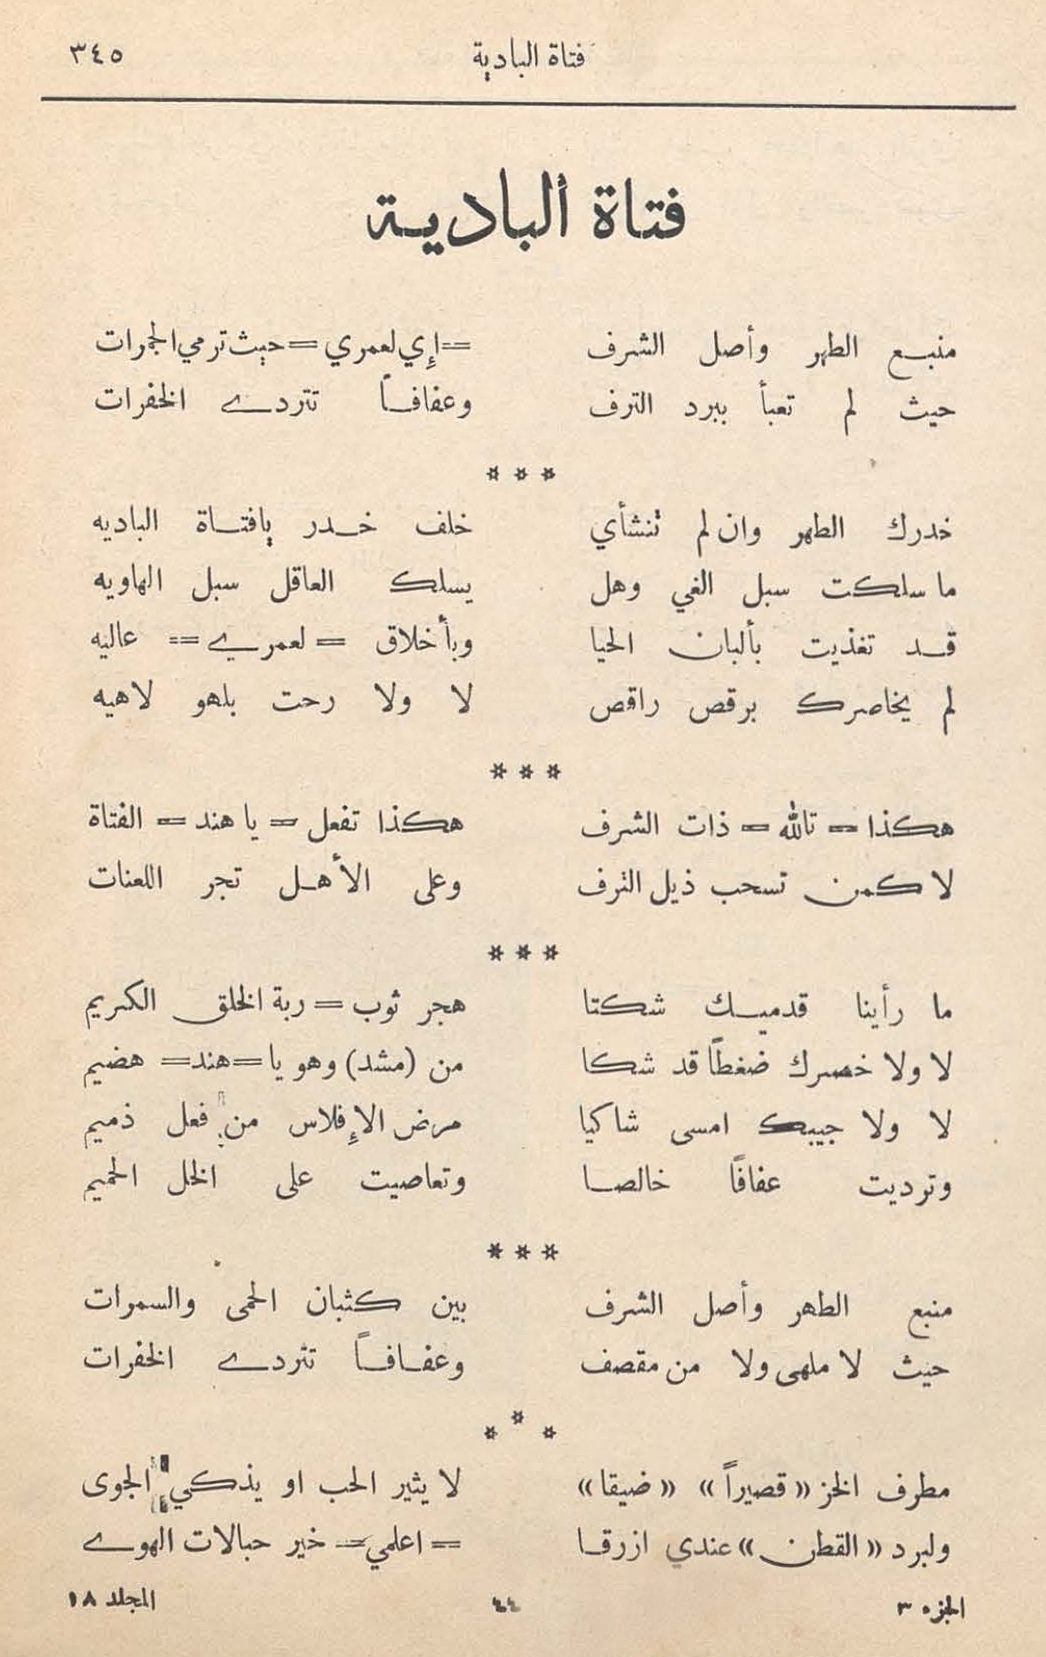 فتاة البادية ٣٤٥
فتاة ألبادية
منبع الطهر وأصل الشرف =إي لعمري= حيث ترمي الجمرات
حيث لم تعبأ ببرد الترف وعفافاً تتردے الخفرات
* * *
خدرك الطهر وان لم تنشأي خلف خدر يافتاة الباديه
ما سلكت سبل الغي وهل يسلك العاقل سبل الهاويه
قد تغذيت بألبان الحيا وبأخلاق = لعمري = عاليه
لم يخاصرك برقص راقص لا ولا رحت بلهو لاهيه
* * *
هكذا = تالله = ذات الشرف هكذا تفعل = يا هند = الفتاة
لا كمن تسحب ذيل الترف وعلى الأهل تجر اللعنات
* * *
ما رأينا قدميك شكتا هجر ثوب = ربة الخلق الكريم
لا ولا خصرك ضغطاً قد شكا من (مشد) وهو يا =هند= هضيم
لا ولا جيبك امسى شاكيا مرض الإفلاس من فعل ذميم
وترديت عفافًا خالصا وتعاصيت على الخل الحميم
* * *
منبع الطهر وأصل الشرف بين كثبان الحمى والسمرات
حيث لا ملهى ولا من مقصف وعفافاً تتردے الخفرات
* * *
مطرف الخز «قصيراً» «ضيقا» لا يثير الحب او يذكي الجوى
ولبرد «القطن» عندي ازرقا = اعلمي = خير حبالات الهوے
الجزء ٣ ٤٤ المجلد ١٨